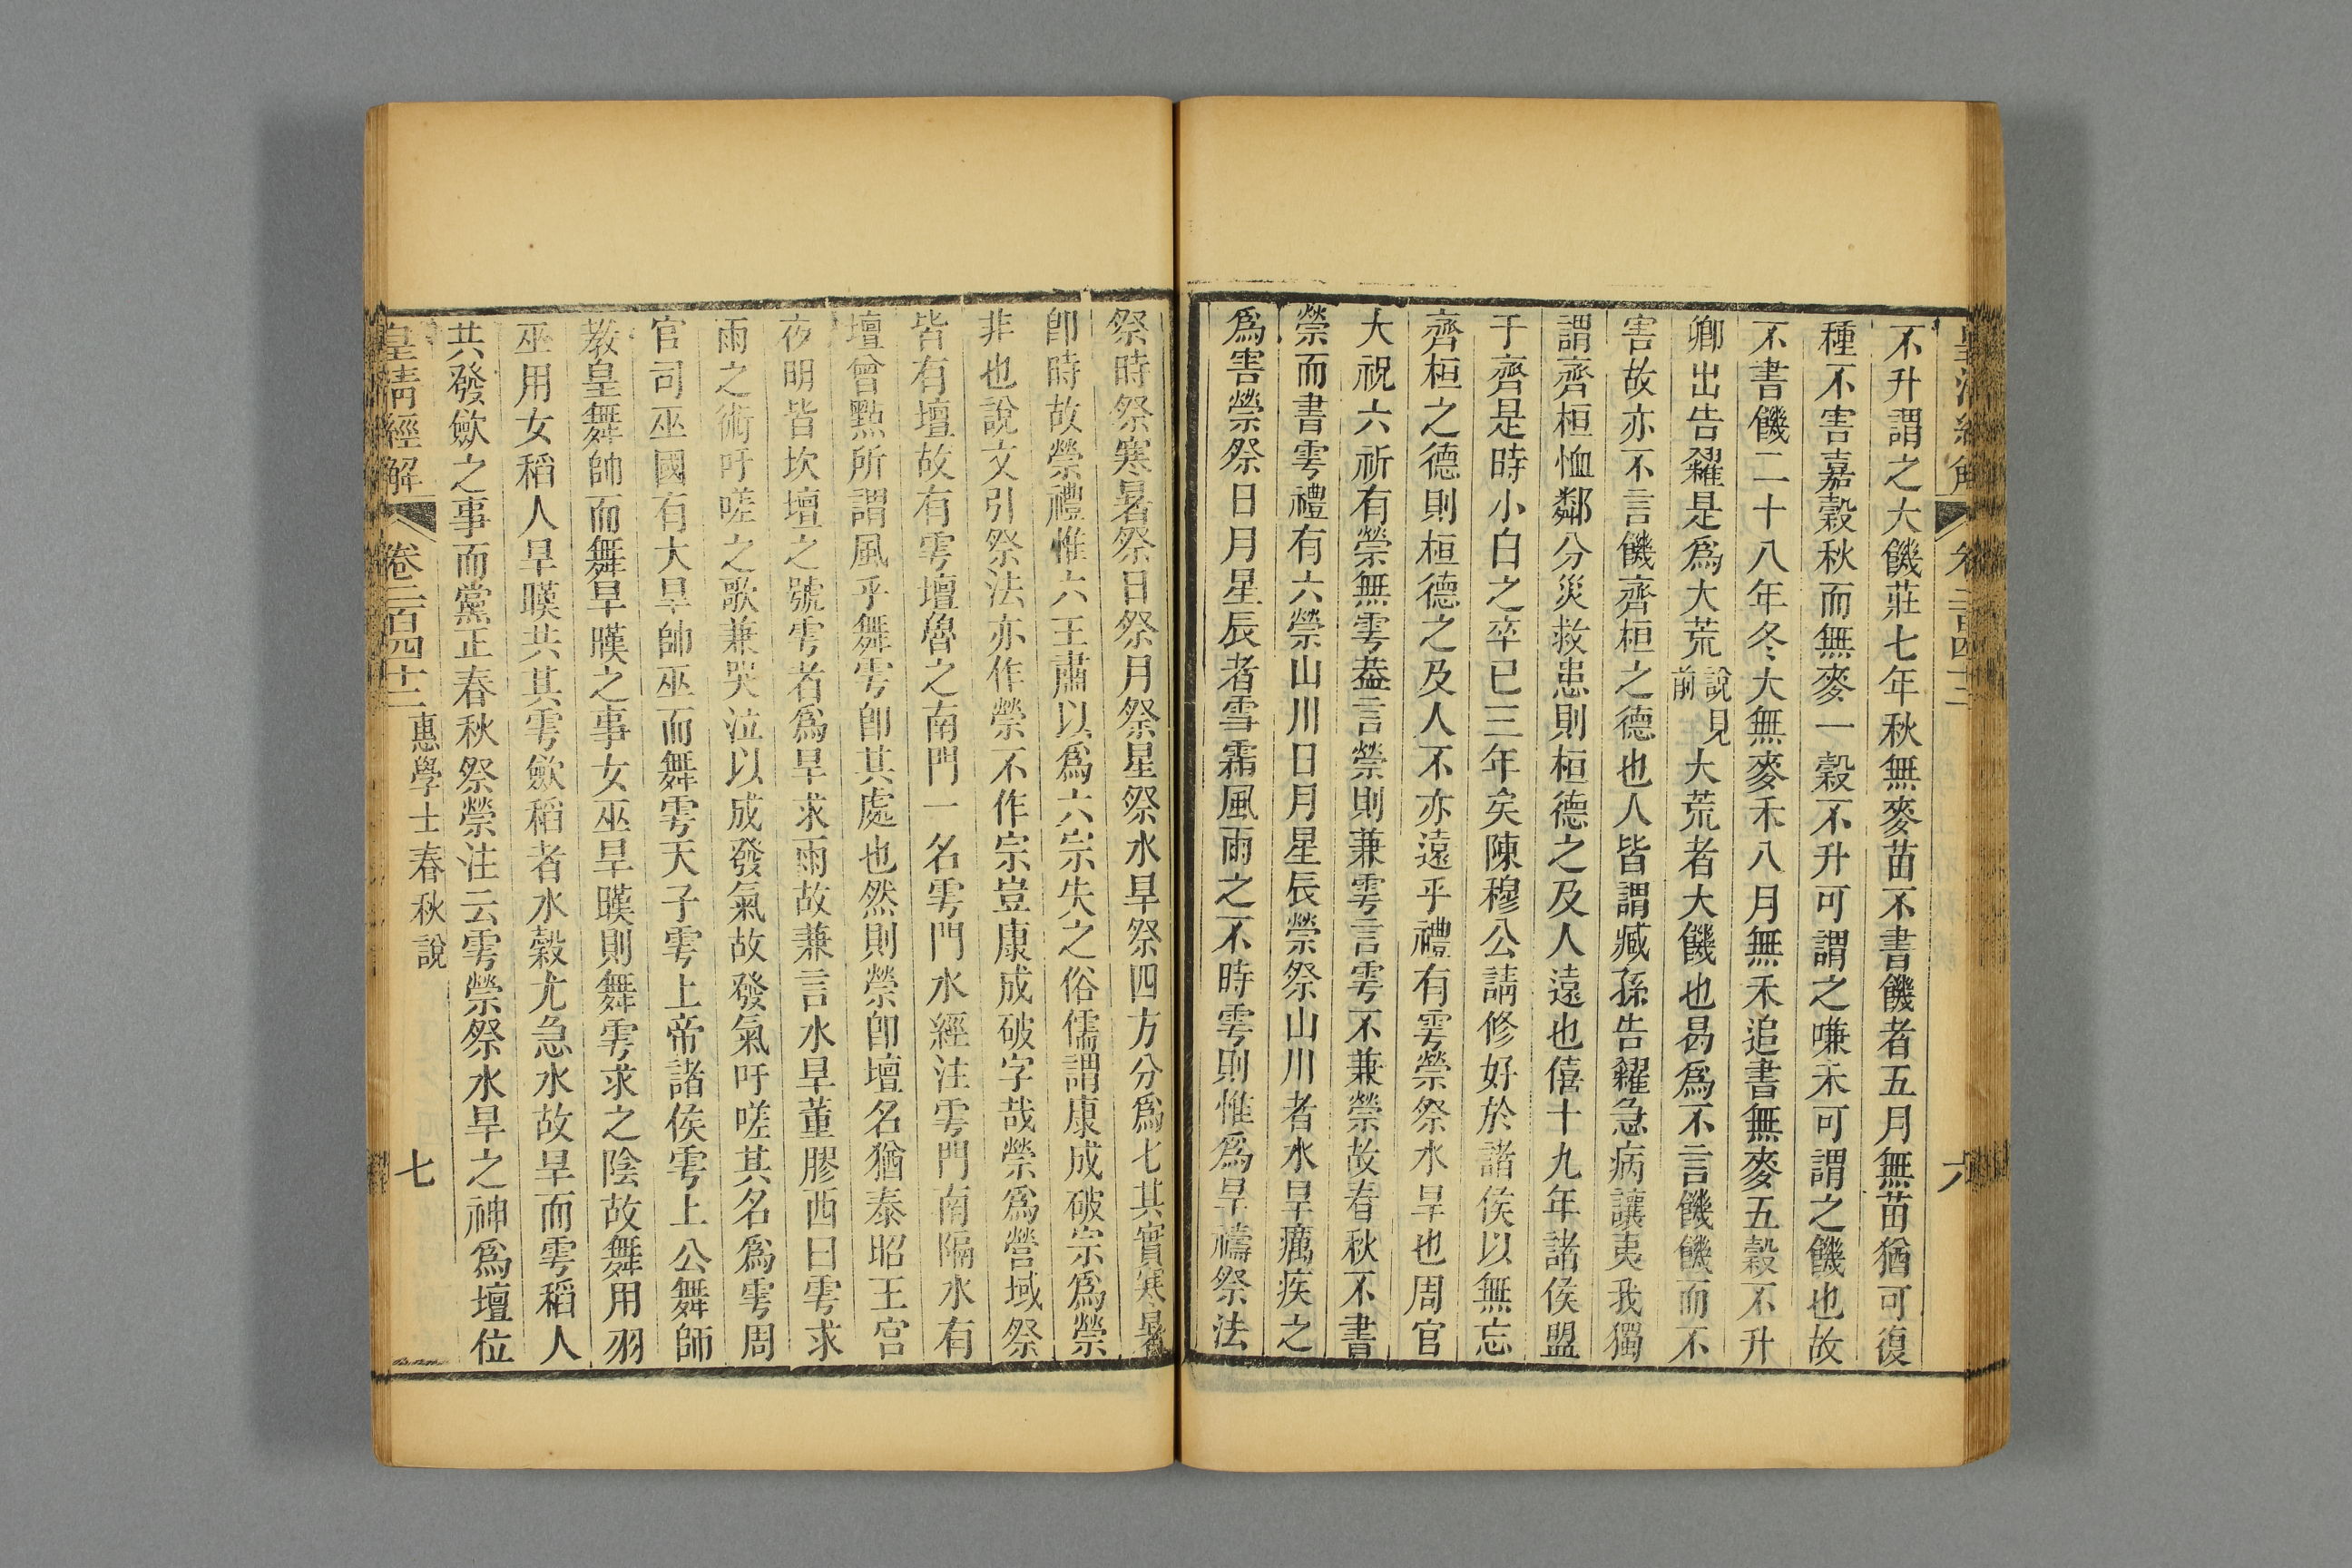 皇清經解
六
不升謂之大饑莊七年秋無麥苗不書饑者五月無苗猶可復
種不害嘉穀秋而無麥一穀不升可謂之嗛未可謂之饑也故
不書饑二十八年冬大無麥禾八月無禾追書無麥五穀不升
卿出告糴是爲大荒說見前大荒者大饑也曷爲不言饑饑而不
害故亦不言饑齊桓之德也人皆謂臧孫告糴急病讓夷我獨
謂齊桓恤鄰分災救患則桓德之及人遠也僖十九年諸侯盟
于齊是時小白之卒已三年矣陳穆公請修好於諸侯以無忘
齊桓之德則桓德之及人不亦遠乎禮有雩禜祭水旱也周官
大祝六祈有禜無雩葢言禜則兼雩言雩不兼禜故春秋不書
禜而書雩禮有六禜山川日月星辰禜祭山川者水旱癘疾之
爲害禜祭日月星辰者雪霜風雨之不時雩則惟爲旱禱祭法
祭時祭寒暑祭日祭月祭星祭水旱祭四方分爲七其實寒暑
卽時故禜禮惟六王肅以爲六宗失之俗儒謂康成破宗爲禜
非也說文引祭法亦作禜不作宗豈康成破字哉禜爲營域祭
皆有壇故有雩壇魯之南門一名雩門水經注雩門南隔水有
壇曾點所謂風乎舞雩卽其處也然則禜卽壇名猶泰昭王宮
夜明皆坎壇之號雩者爲旱求雨故兼言水旱董膠西曰雩求
雨之術吁嗟之歌兼哭泣以成發氣故發氣吁嗟其名爲雩周
官司巫國有大旱帥巫而舞雩天子雩上帝諸侯雩上公舞師
教皇舞帥而舞旱暵之事女巫旱暵則舞雩求之陰故舞用羽
巫用女稻人旱暵共其雩斂稻者水穀尤急水故旱而雩稻人
共發斂之事而黨正春秋祭禜注云雩禜祭水旱之神爲壇位
皇清經解
卷二百四十二
惠學士春秋說
七